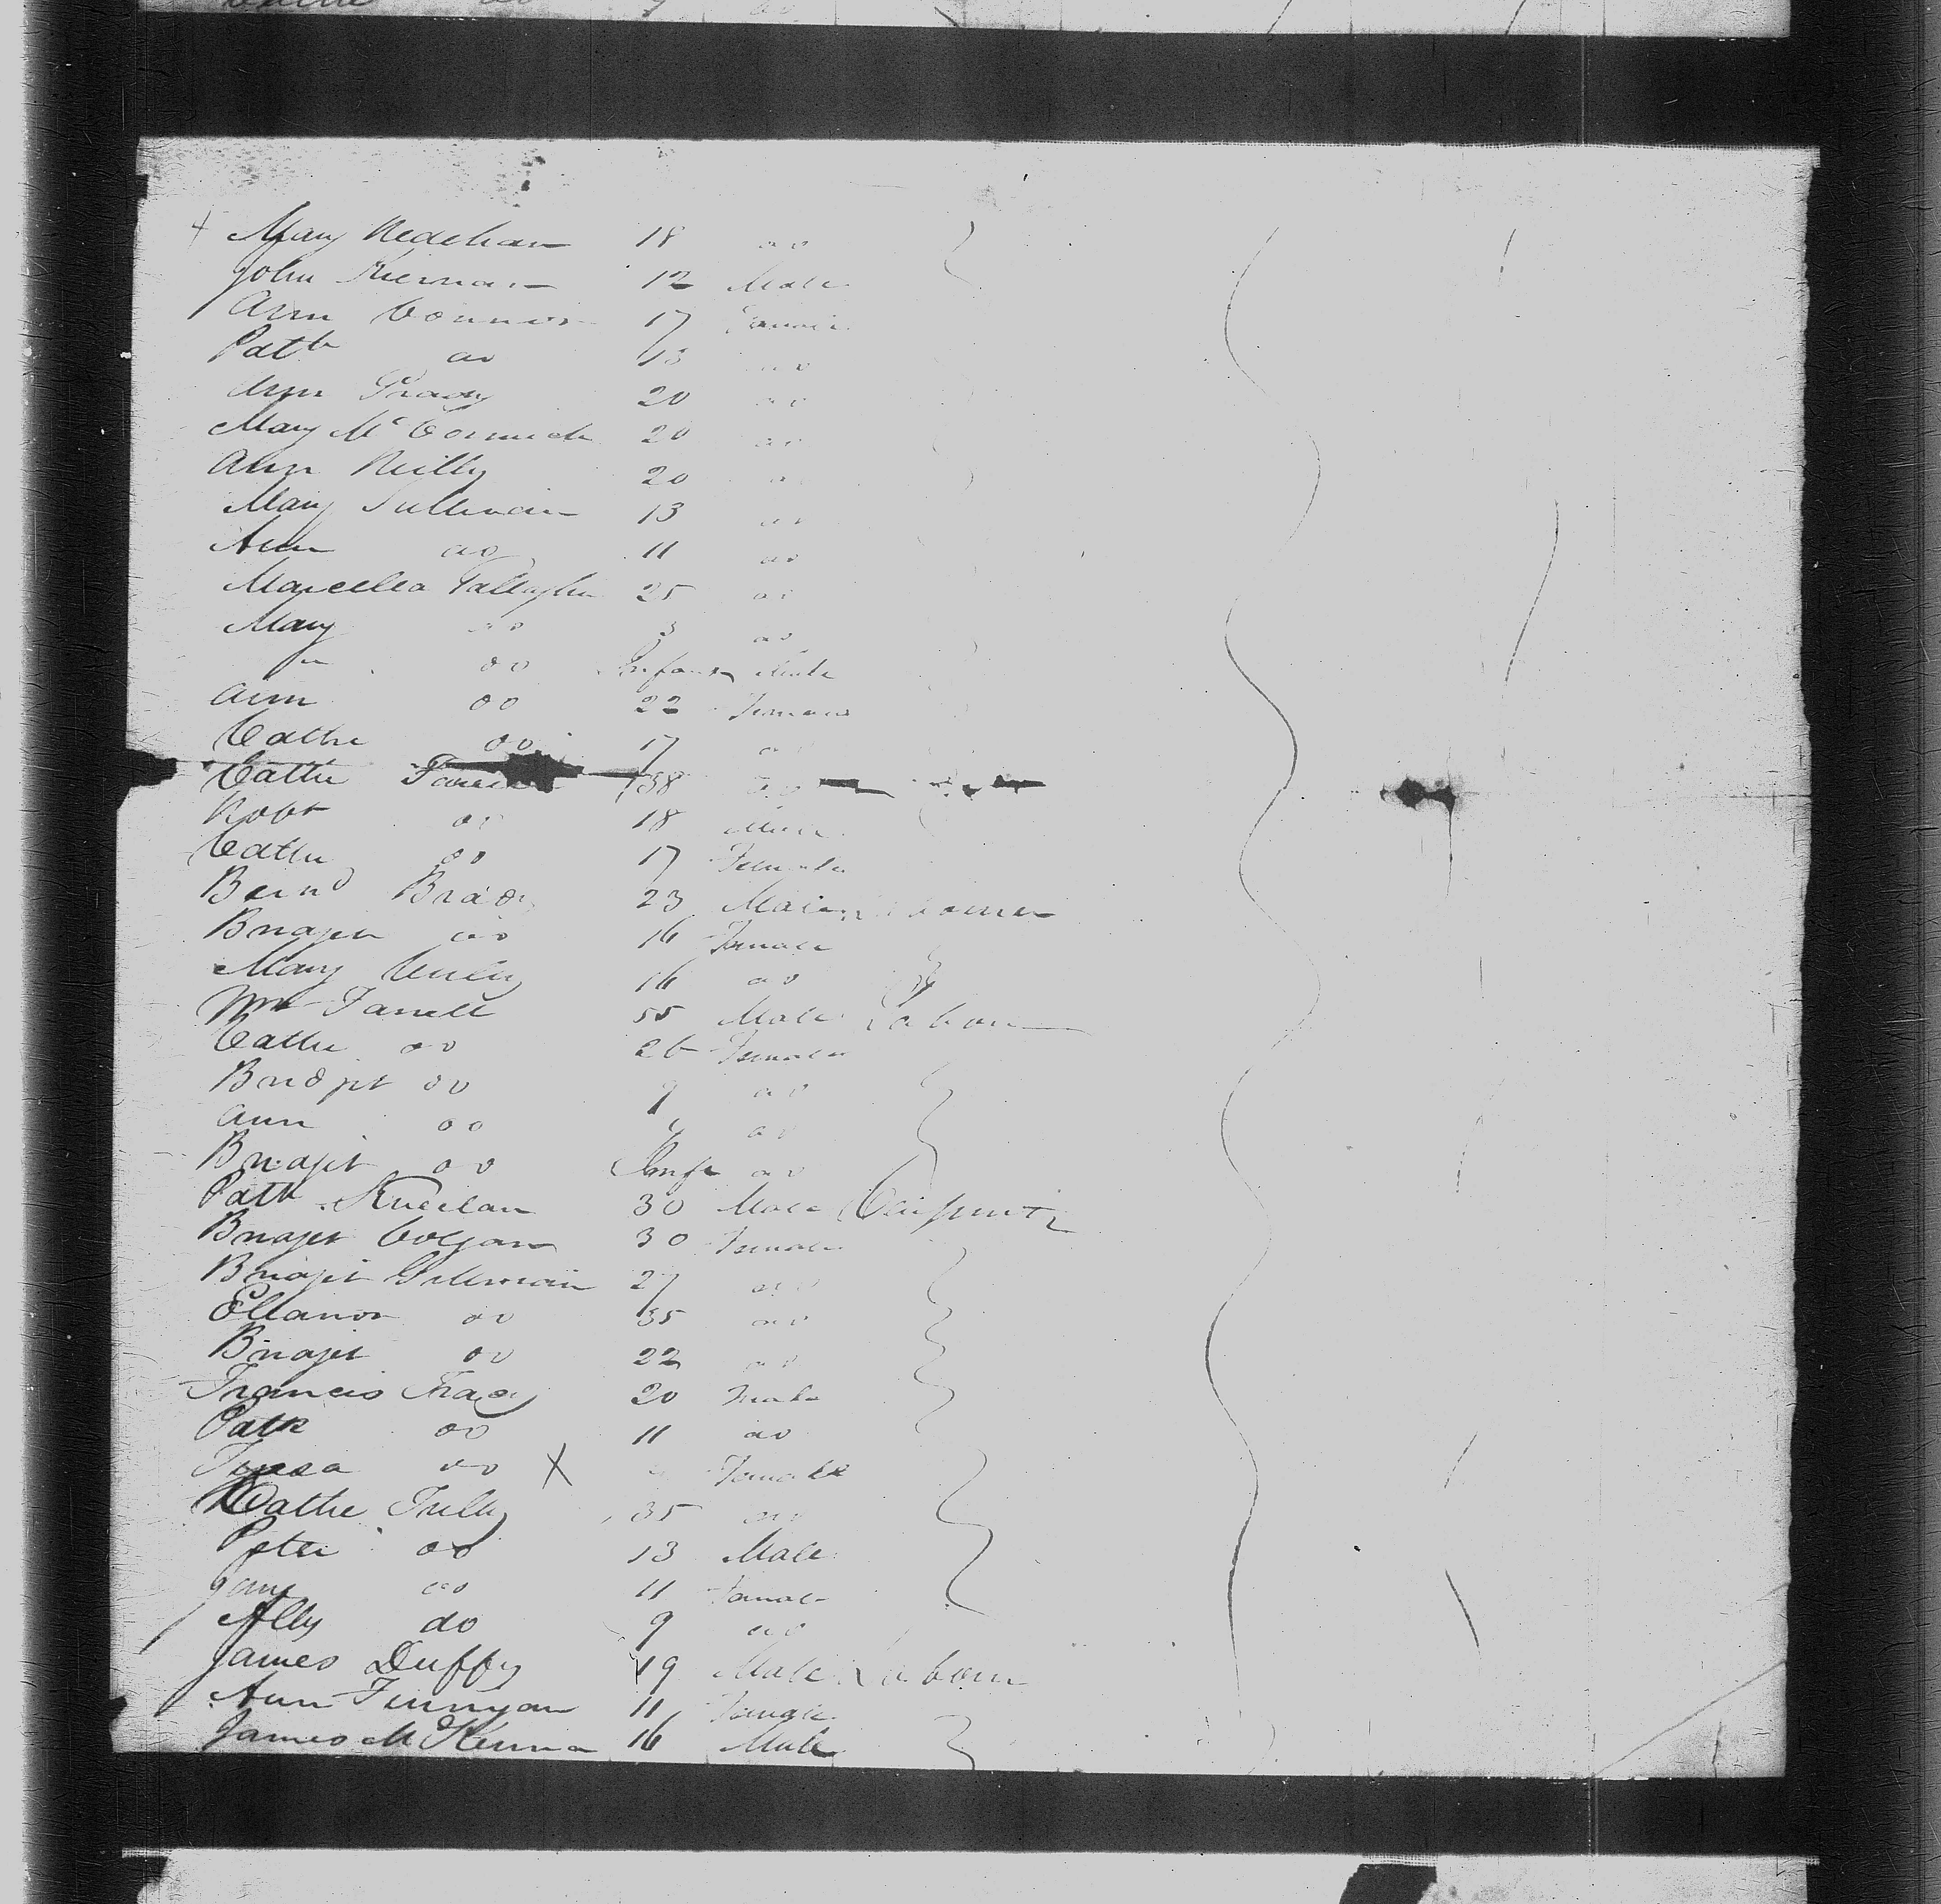 Mary 18 do
John Kiernan 12 Male
Ann Connor 17 Female
Patk do 13 do
Ann Grady 20 do
Mary McCormick 20 do
Ann Reilly 20 do
Mary Sullivan 13 do
Ann do 11 do
Marcella Gallagher 25 do
Mary do 3 do
do Infant Male
Ann do 22 Female
Cathe do 17 do
Cathe 38 do
Robt do 18 Male
Cathe do 17 Female
Bernd Brady 23 Male Labourer
Bridget do 16 Female
Mary 16 do
Farrell 55 Male Labour
Cathe do 26 Female
Bridget do 9 do
Ann do do
Bridget do Inft do
Patk 30 Male Carpenter
Bridget Colgan 30 Female
Bridget 27 do
Elleanor do 35 do
Bridget do 22 do
Francis 20 Male
Patk do 11 do
do X Female
Cathe Tully 35 do
Peter do 13 Male
Jane do 11 Female
Ally do 9 do
James Duffy 19 Male Labour
Ann Finnigan 11 Female
James McKenna 16 Male